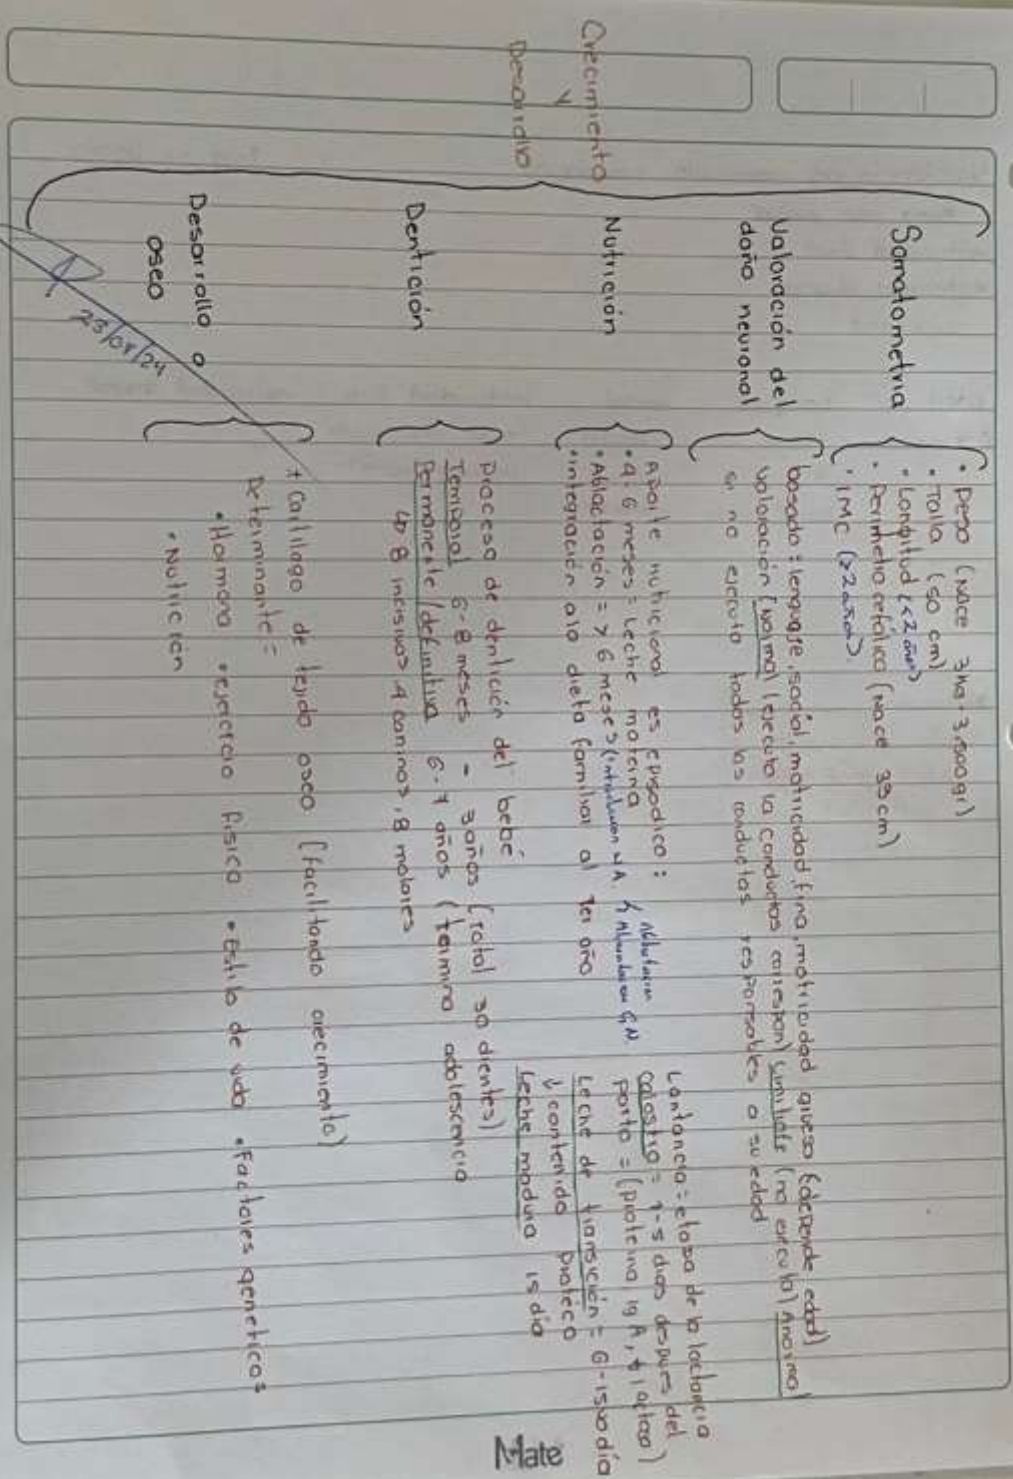 Crecimiento
y
Desarrollo
Somatometria
• Peso (Nace 3kg - 3.500gr)
• Talla (50 cm)
• Longitud (<2 años)
• Perimetro cefálico (Nace 33 cm)
• IMC (>2 años).
Valoración del
daño neuronal
basado: lenguaje, social, motricidad fina, motricidad gruesa (depende edad)
valoración (Normal (ejecuta la conductas correspon)
(no ejecuta) Anormal
si no ejecuta todas las conductas responsables a su edad
Nutrición
Aporte nutricional es episodico:
• 4-6 meses = Leche materna
• Ablactación = > 6 meses
• integración a la dieta familiar al 1er año
etapa de la lactancia
calostro = 1-5 dias despues del
parto = (proteina IgA, lactosa)
Leche de transición = 6-15vo día
↓ contenido protéco
Leche madura 15 día
Dentición
Proceso de dentición del bebé
Temporal 6-8 meses - 3 años (total 30 dientes)
Permanente/definitiva 6-7 años (termino adolescencia
↳ 8 incisivos, 4 caninos, 8 molares
Desarrollo o
oseo
* Cartilago de tejido oseo (facilitando crecimiento)
Determinante =
• Hormona • ejercicio fisico • Estilo de vida • Factores geneticos
• Nutrición
23/08/24
Mate